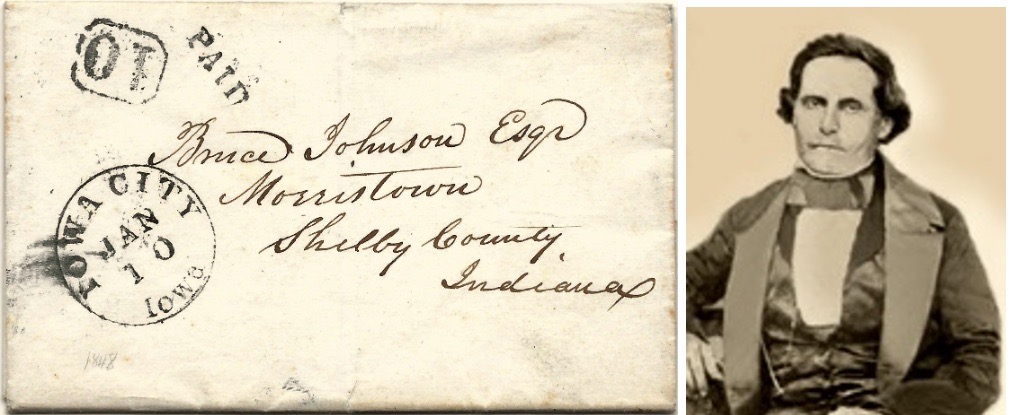 10
PAID
Bruce Johnson Esqr
Morristown
Shelby County
Indiana
IOWA CITY
JAN
10
IOWA
1848